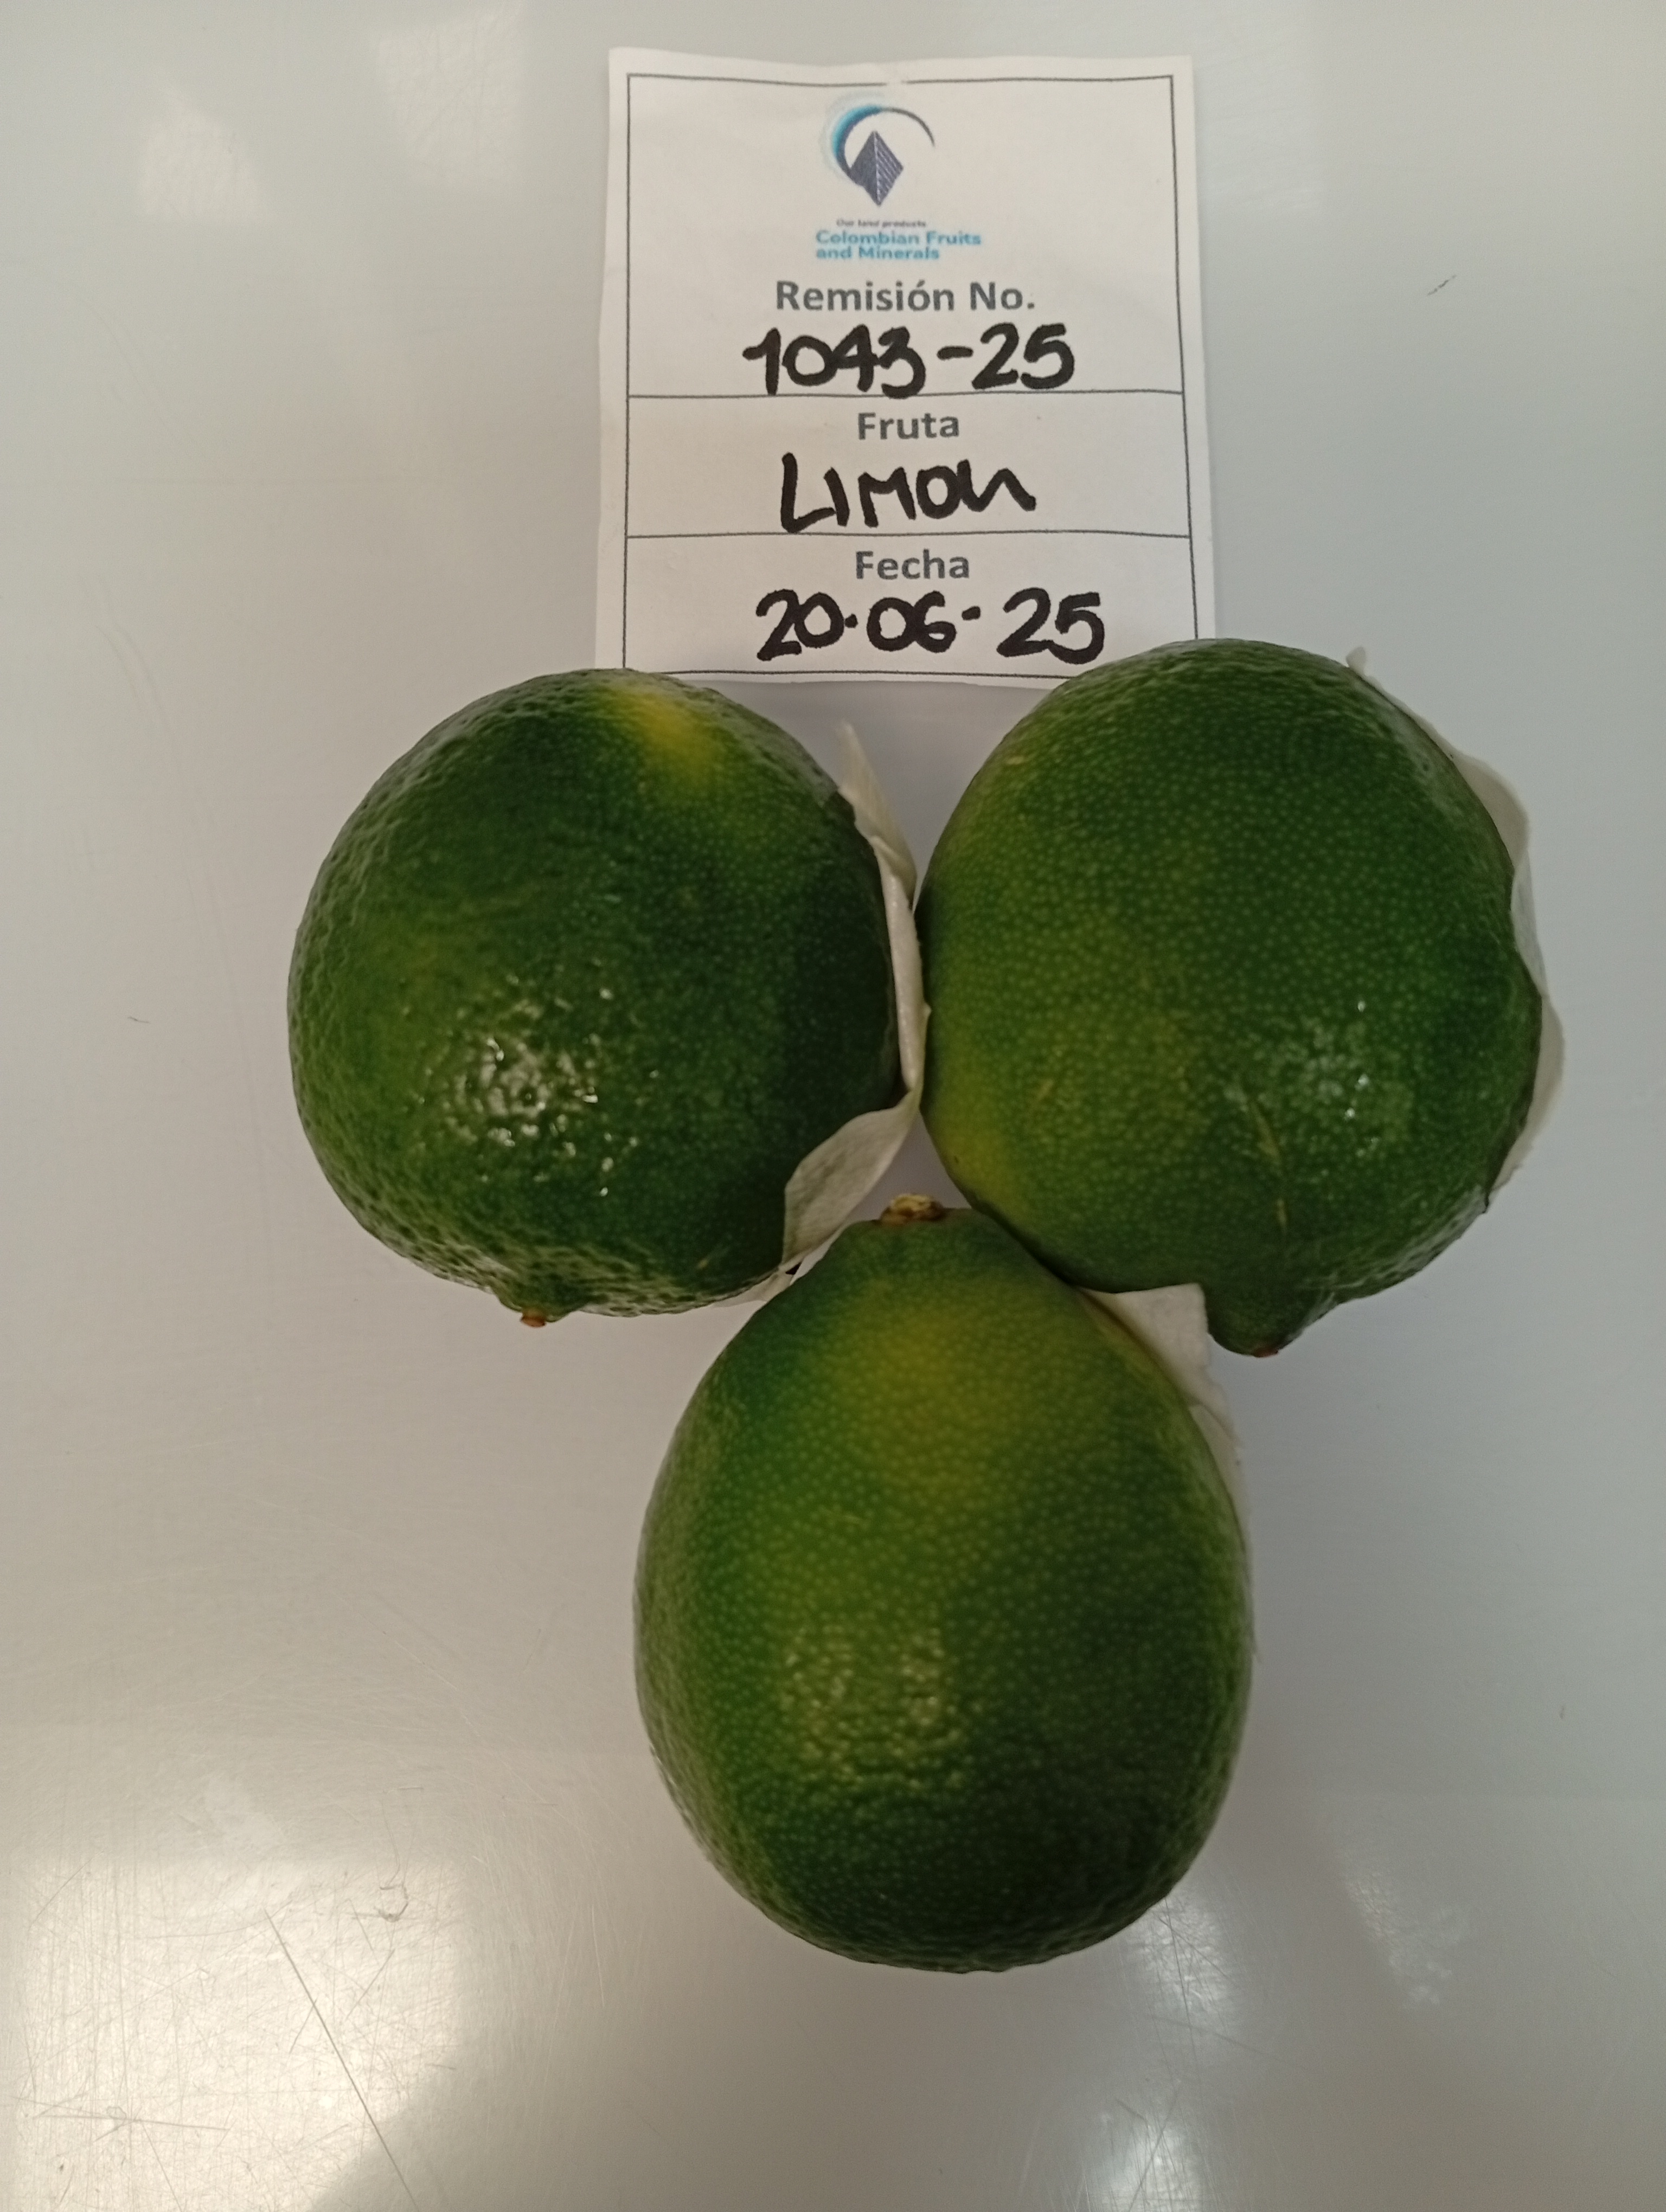 Our land products
Colombian Fruits
and Minerals
Remisión No.
1043-25
Fruta
LIMON
Fecha
20.06-25